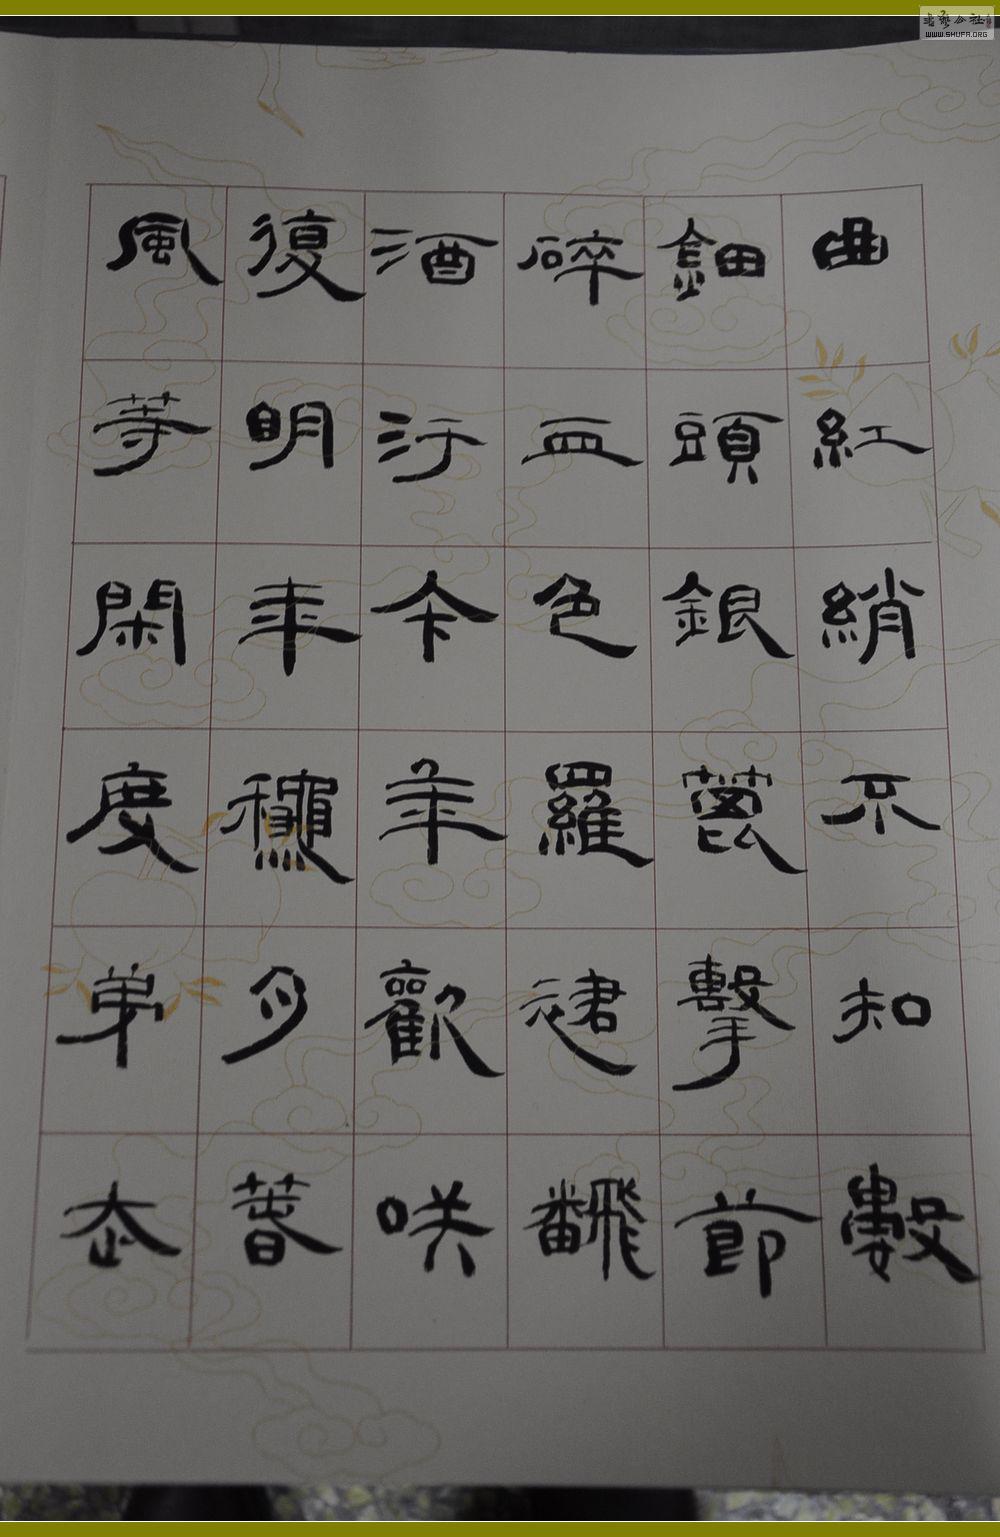 曲紅綃不知數
鈿頭銀篦擊節
碎血色羅裙飜
酒汙今年歡咲
復明年秋月春
風等閑度弟走
WWW.SHUFA.ORG